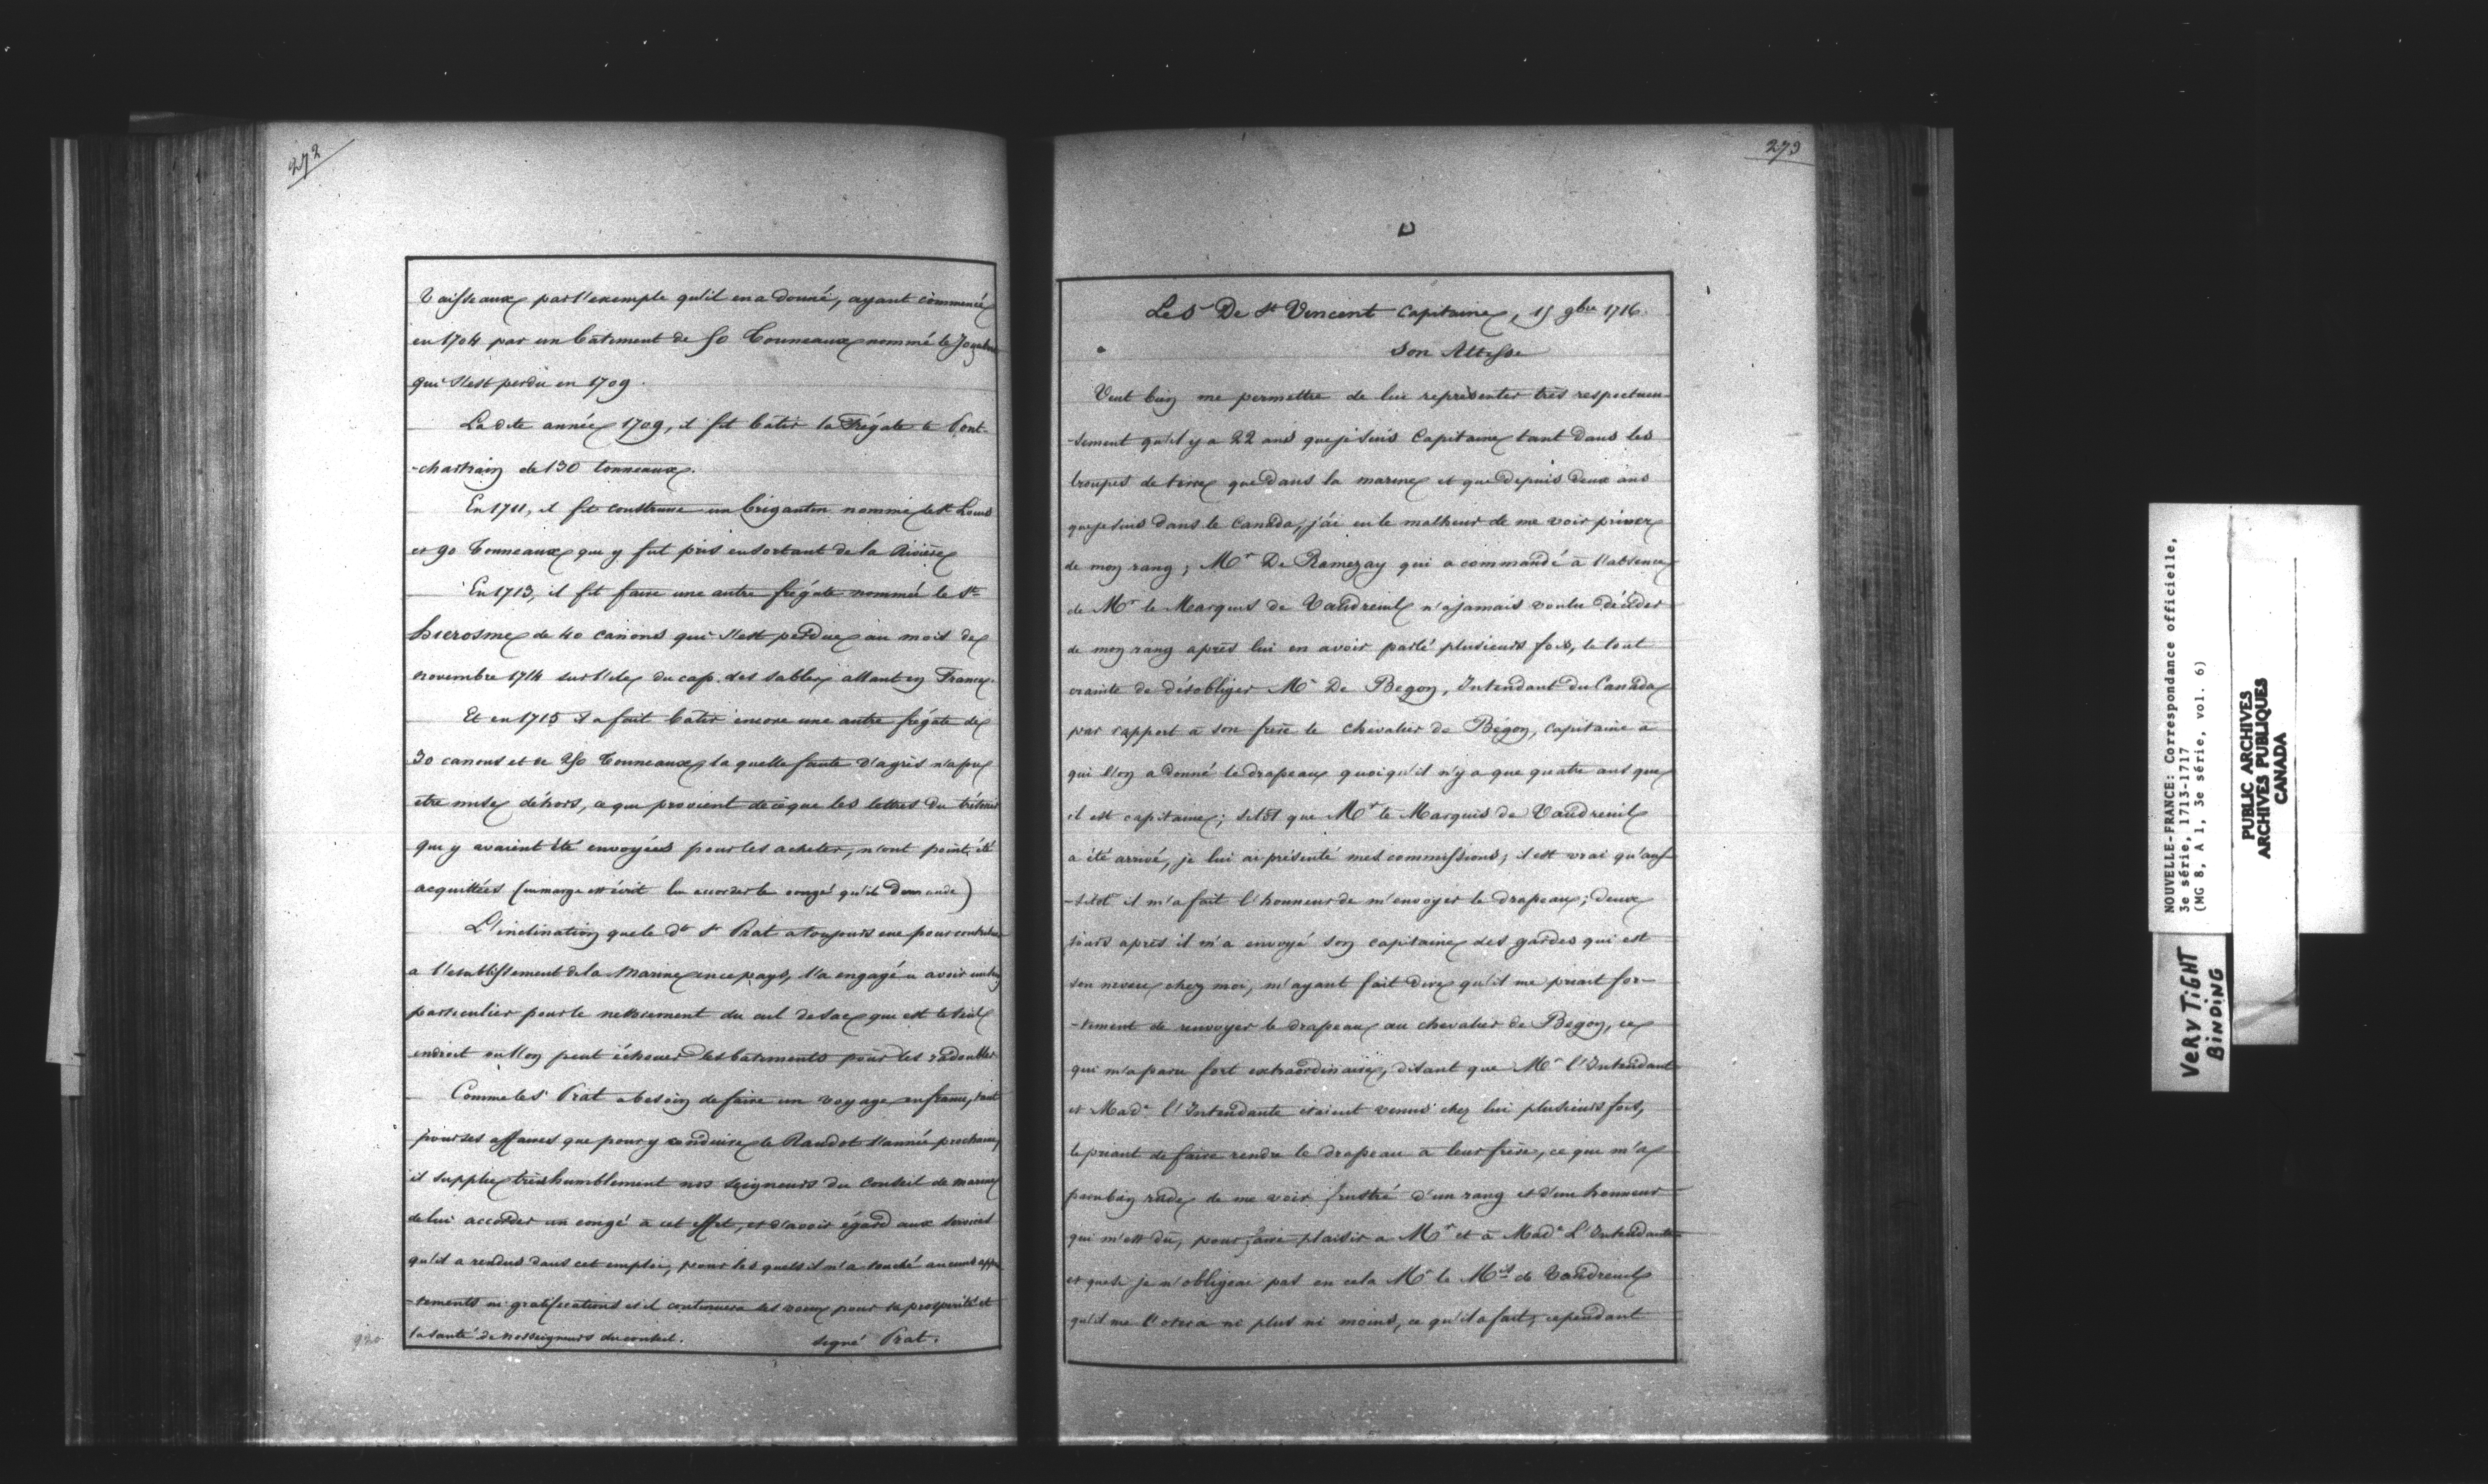 272
Vaisseaux par l'exemple qu'il en a donné, ayant commencé
en 1704 par un bâtiment de 50 Tonneaux nommé le
qui s'est perdu en 1709.
La dite année 1709, il fit bâtir la Frégate le Pont-
-chartrain de 130 tonneaux.
En 1711, il fit construire un brigantin nommé le St Louis
et 90 Tonneaux qui y fut pris en sortant de la Rivière
En 1713, il fit faire une autre frégate nommée le St
hierosme de 40 canons qui s'est perdue au mois de
novembre 1714 sur l'isle du cap des sables allant en France.
Et en 1715 il a fait bâtir encore une autre frégate de
30 canons et de 250 Tonneaux la quelle faute d'agrès n'a pu
etre mise déhors, ce qui provient de ce que les lettres du trésorier
qui y avaient été envoyées pour les acheter, n'ont point été
acquittées (en marge est écrit lui accorder le congé qu'il demande)
L'inclination que le dt Sr Prat a toujours eue pour contribuer
a l'etablissement de la Marine en ce pays, l'a engagé a avoir un soin
particulier pour le nettoiement du cul de sac qui est le seul
endroit où l'on peut échouer les batiments pour les radoubler
Comme le Sr Prat a besoin de faire un voyage en france, tant
pour ses affaires que pour y conduire le Raudot l'année prochaine,
il supplie très humblement nos seigneurs du Conseil de marine
de lui accorder un congé à cet effet, et d'avoir égard aux services
qu'il a rendus dans cet emploi, pour les quels il n'a touché aucuns appoin
-tements ni gratifications et il continuera ses voeux pour la prospérité et
la santé de nosseigneurs du conseil. signé Prat.
273
Le Sr De St Vincent Capitaine, 15 9bre 1716.
Son Altesse
Veut bien me permettre de lui représenter très respectueu-
-sement qu'il y a 22 ans que je suis Capitaine tant dans les
troupes de terre que dans la marine et que depuis deux ans
que je suis dans le Canada, j'ai eu le malheur de me voir priver
de mon rang; Mr De Ramezay qui a commandé à l'absence
de Mr le Marquis de Vaudreuil n'a jamais voulu décider
de mon rang après lui en avoir parlé plusieurs fois, le tout
crainte de désobliger Mr De Begon, Intendant du Canada
par rapport à son frère le chevalier de Bégon, capitaine à
qui l'on a donné le drapeau quoiqu'il n'y a que quatre ans que
il est capitaine; sitôt que Mr le Marquis de Vaudreuil
a été arrivé, je lui ai présenté mes commissions; il est vrai qu'aus-
-sitôt il m'a fait l'honneur de m'envoyer le drapeau; deux
jours après il m'a envoyé son capitaine des gardes qui est
son neveu chez moi, m'ayant fait dire qu'il me priait for-
-tement de renvoyer le drapeau au chevalier de Begon, ce
qui m'a paru fort extraordinaire, disant que Mr l'Intendant
et Made l'Intendante étaient venus chez lui plusieurs fois,
le priant de faire rendre le drapeau à leur frère, ce qui m'a
paru bien rude de me voir frustré d'un rang et d'un honneur
qui m'est dû, pour faire plaisir a Mr et à Made L'Intendante
et que si je n'obligeai pas en cela Mr le Mis de Vaudreuil
qu'il me l'otera ni plus ni moins, ce qu'il a fait, cependant
NOUVELLE-FRANCE: Correspondance officielle,
3e série, 1713-1717
(MG 8, A 1, 3e série, vol. 6)
PUBLIC ARCHIVES
ARCHIVES PUBLIQUES
CANADA
VERY TIGHT
BINDING